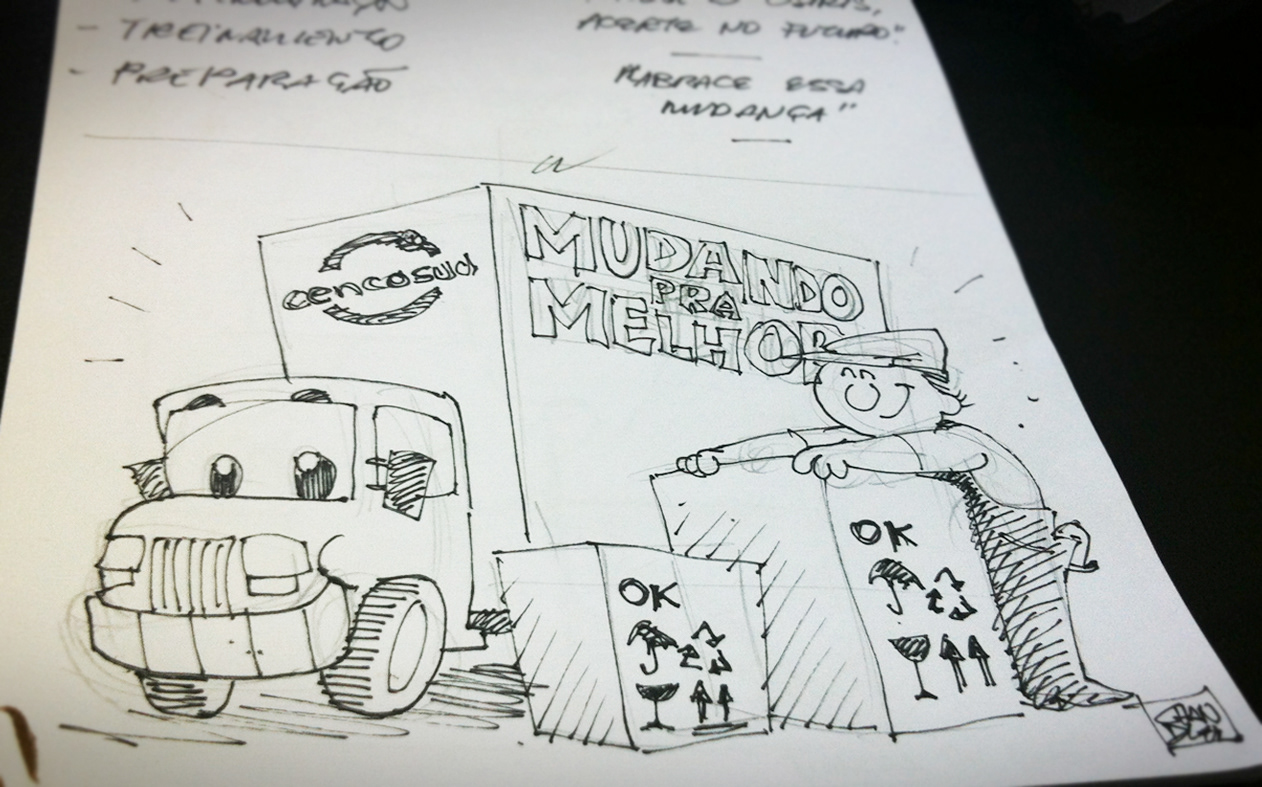 - TREINAMENTO
- PREPARAÇÃO
ACERTE NO FUTURO."
"ABRACE ESSA
MUDANÇA"
cencosud
MUDANDO
PRA
MELHOR
OK
OK